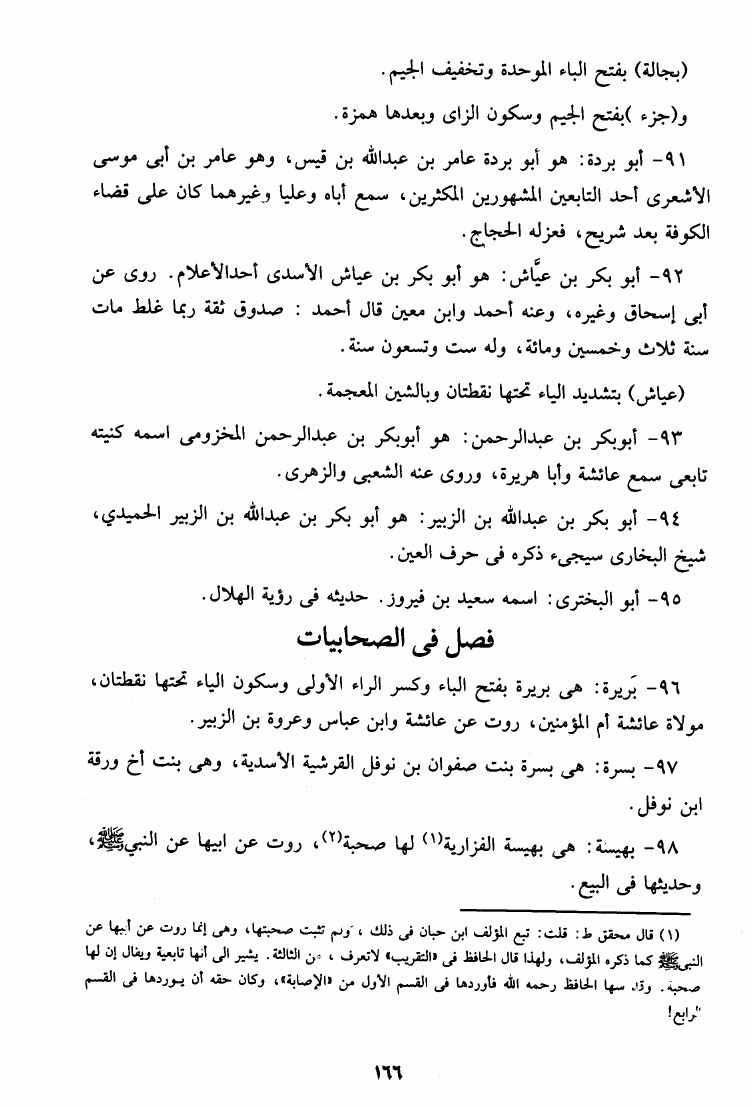 (بجالة) بفتح الباء الموحدة وتخفيف الجيم.
و(جزء )بفتح الجيم وسكون الزاى وبعدها همزة.
٩١- أبو بردة: هو أبو بردة عامر بن عبدالله بن قيس، وهو عامر بن أبى موسى
الأشعرى أحد التابعين المشهورين المكثرين، سمع أباه وعليا وغيرهما كان على قضاء
الكوفة بعد شريح، فعزله الحجاج.
٩٢- أبو بكر بن عيَّاش: هو أبو بكر بن عياش الأسدى أحدالأعلام. روى عن
أبى إسحاق وغيره، وعنه أحمد وابن معين قال أحمد : صدوق ثقة ربما غلط مات
سنة ثلاث وخمسين ومائة، وله ست وتسعون سنة.
(عياش) بتشديد الياء تحتها نقطتان وبالشين المعجمة.
٩٣- أبوبكر بن عبدالرحمن: هو أبوبكر بن عبدالرحمن المخزومى اسمه كنيته
تابعى سمع عائشة وأبا هريرة، وروى عنه الشعبى والزهرى.
٩٤- أبو بكر بن عبدالله بن الزبير: هو أبو بكر بن عبدالله بن الزبير الحميدي،
شيخ البخارى سيجىء ذكره فى حرف العين.
٩٥- أبو البخترى: اسمه سعيد بن فيروز. حديثه فى رؤية الهلال.
فصل فى الصحابيات
٩٦- بَريرة: هى بريرة بفتح الباء وكسر الراء الأولى وسكون الياء تحتها نقطتان،
مولاة عائشة أم المؤمنين، روت عن عائشة وابن عباس وعروة بن الزبير.
٩٧- بسرة: هى بسرة بنت صفوان بن نوفل القرشية الأسدية، وهى بنت أخ ورقة
ابن نوفل.
٩٨- بهيسة: هى بهيسة الفزارية(١) لها صحبة(٢)، روت عن ابيها عن النبيﷺ،
وحديثها فى البيع.
(١) قال محقق ط: قلت: تبع المؤلف ابن حبان فى ذلك ، ولم تثبت صحبتها، وهى إنما روت عن أبيها عن
النبيﷺ كما ذكره المؤلف، ولهذا قال الحافظ فى «التقريب» لاتعرف ، من الثالثة. يشير الى أنها تابعية ويقال إن لها
صحبة. سها الحافظ رحمه الله فأوردها فى القسم الأول من «الإصابة»، وكان حقه أن يوردها فى القسم
الرابع!
١٦٦